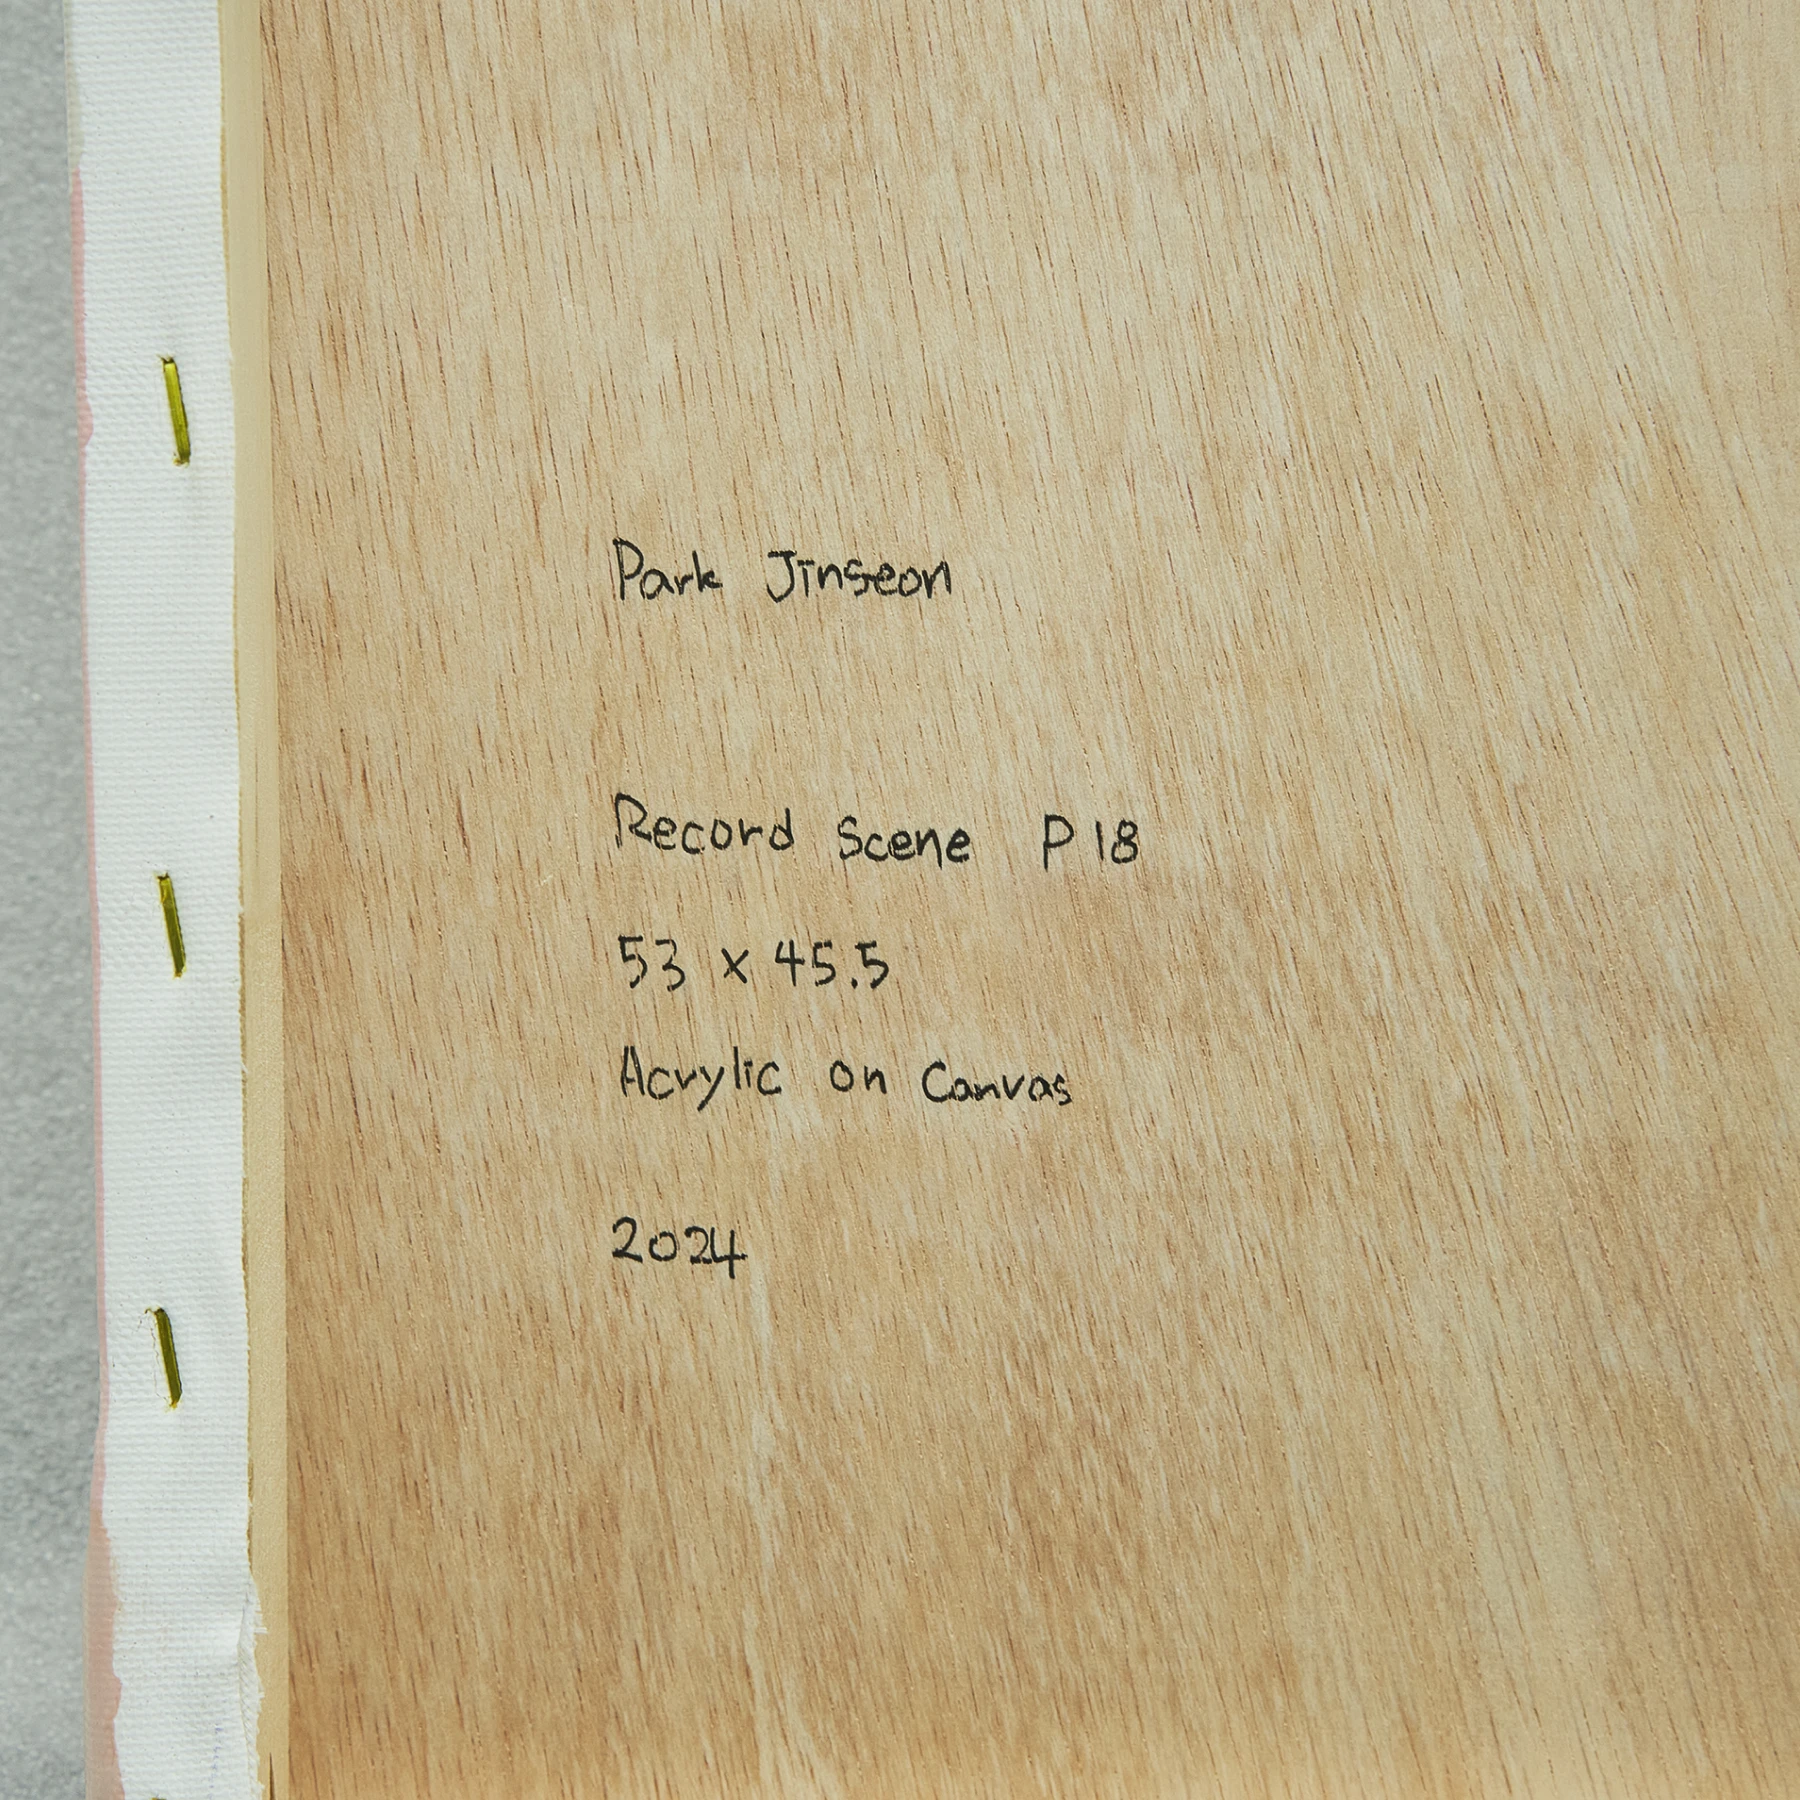 Park Jinseon
Record Scene P18
53 x 45.5
Acrylic on Canvas
2024